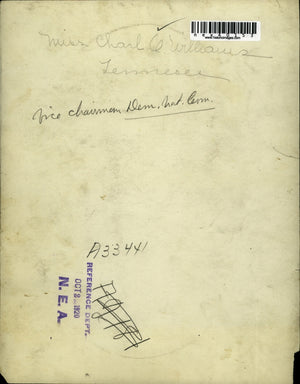 Miss Charl O Williams
Tennessee
vice chairman Dem. Nat. Com.
A33441
REFERENCE DEPT.
OCT 8 1920
N. E. A.